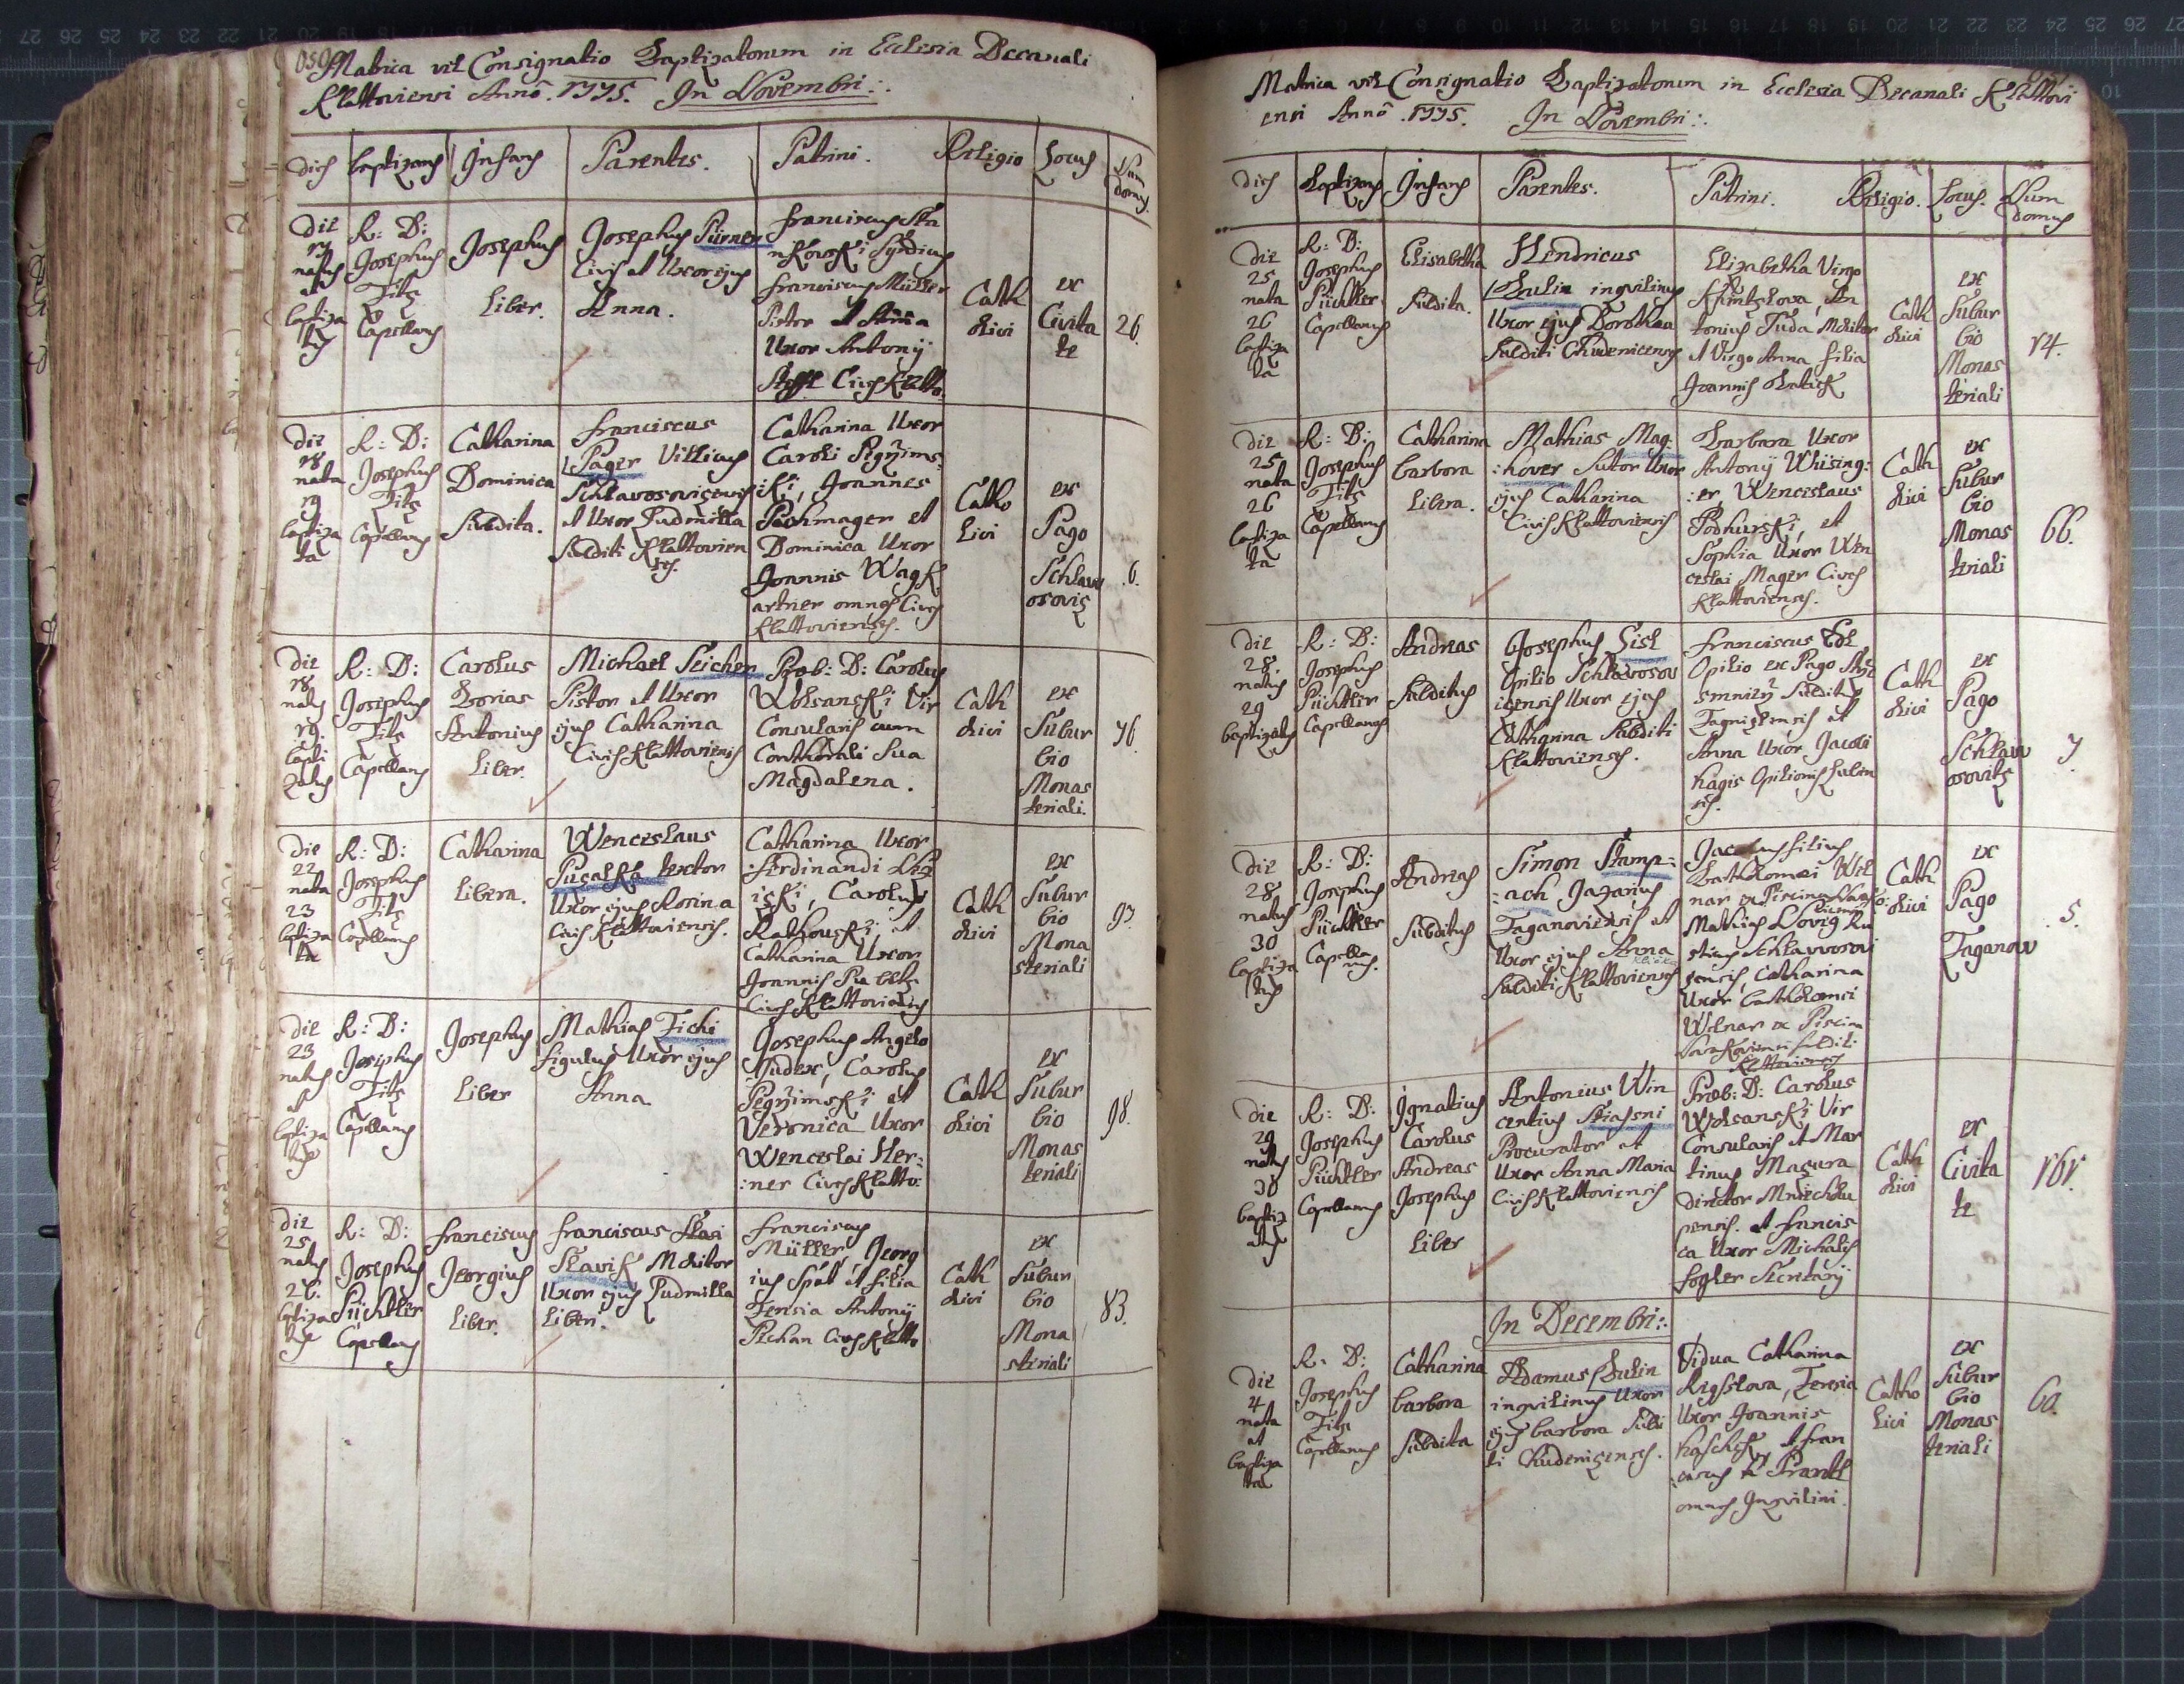 Matrica vel Consignatio Baptizatorum in Ecclesia Decanali
Klattoviensi Annô. 1775. In Novembri:.
dies baptizans Infans Parentes. Patrini. Religio Locus Num domus.
Die
17
natus
et
baptiza
tus
R: D:
Josephus
Titz
Capellanus
Josephus
Liber.
Josephus Pürner
Civis et Uxor ejus
Anna.
Franciscus Sta
nkovski Syndicus
Franciscus Müller
Pistor et Anna
Uxor Antonij
Civis Klatto.
Cath
olici
ex
Civita
te
26.
Die
18
nata
19
baptiza
ta
R: D:
Josephus
Titz
Capellanus
Catharina
Dominica
Subdita.
Franciscus
Pager Villicus
et Uxor Ludmilla
Subditi Klattovien
ses.
Catharina Uxor
Caroli Pegrzims:
:ki, Joannes
Pachmager et
Dominica Uxor
Joannis Wagk
artner omnes Cives
Klattovienses.
Catho
lici
ex
Pago
Schlaw
osovic
6.
Die
18
natus
19.
bapti
zatus
R: D:
Josephus
Titz
Capellanus
Carolus
Borias
Antonius
Liber.
Michael Seicher
Pistor et Uxor
ejus Catharina
Cives Klattovienses
Præb: D: Carolus
Woksanski Vir
Consularis cum
Conthorali Sua
Magdalena.
Cath
olici
ex
Subur
bio
Monas
teriali.
76.
Die
22
nata
23
baptiza
ta
R: D:
Josephus
Titz
Capellanus
Catharina
Libera.
Wenceslaus
Pucalka textor
Uxor ejus Rosina
Cives Klattovienses.
Catharina Uxor
Ferdinandi
Carolus
Rathouski, et
Catharina Uxor
Joannis
Cives Klattovienses
Cath
olici
ex
Subur
bio
Mona
steriali
97.
Die
23
natus
et
baptiza
tus
R: D:
Josephus
Titz
Capellanus
Josephus
Liber
Mathias Zichi
figulus Uxor ejus
Anna
Josephus Angelo
Judex, Carolus
Pegrzimski et
Veronica Uxor
Wenceslai Her:
:ner Cives Klatto:
Cath
olici
ex
Subur
bio
Monas
teriali
98.
Die
25
natus
26.
baptiza
tus
R: D:
Josephus
Püchtler
Capellanus
Franciscus
Georgius
Liber.
Franciscus
Slavik Molitor
Uxor ejus Ludmilla
Liberi.
Franciscus
Müller, Georg
ius Spát et filia
Teresia Antonij
Pechan Cives Klatto
Cath
olici
ex
Subur
bio
Mona
steriali
83.
Matrica vel Consignatio Baptizatorum in Ecclesia Decanali Klattovi
ensi Annô .1775. In Novembri:.
Dies Baptizans Infans Parentes. Patrini. Religio. Locus. Num domus
Die
25
nata
26
baptiza
ta
R: D:
Josephus
Püchtler
Capellanus
Elisabetha
Subdita.
Hendricus
Bulin inqvilinus
Uxor ejus Dorothea
Subditi Chudenicenses
Elizabetha Virgo
An
tonius Tuda Molitor
et Virgo Anna filia
Joannis
Cath
olici
ex
Subur
bio
Monas
teriali
14.
Die
25
nata
26
baptiza
ta
R: D:
Josephus
Titz
Capellanus
Catharina
Barbora
Libera.
Mathias Mag:
:hover Sutor Uxor
ejus Catharina
Cives Klattovienses
Barbara Uxor
Antonij Whising:
:er, Wenceslaus
Podhurski, et
Sophia Uxor Wen
ceslai Mager Cives
Klattovienses.
Cath
olici
ex
Subur
bio
Monas
teriali
66.
Die
28
natus
29
baptizatus
R: D:
Josephus
Püchtler
Capellanus
Andreas
Subditus
Josephus Sisl
Opilio Schlavosov
icensis Uxor ejus
Catharina Subditi
Klattovienses.
Franciscus Edl
Opilio ex Pago
Subditus
et
Anna Uxor Jacobi
Hagis Opilionis
Cath
olici
ex
Pago
Schlaw
osovitz
7
Die
28
natus
30
baptiza
tus
R: D:
Josephus
Püchtler
Capella
nus.
Andreas
Subditus
Simon Stamp:
:ach
Taganoviensis et
Uxor ejus Anna
Subditi Klattovienses
Jacobus filius
Bartholomei Wel
nar ex Piscina
Mathias Ru
sticus Schlavvosovi
censis, Catharina
Uxor Bartholomei
Welnar ex Piscina
Subditi
Klattovienses
Cath
olici
ex
Pago
Taganow
5.
Die
29
natus
30
baptiz
atus
R: D:
Josephus
Püchtler
Capellanus
Ignatius
Carolus
Andreas
Josephus
Liber
Antonius Vin
centius Stiassni
Procurator et
Uxor Anna Maria
Cives Klattovienses
Præb: D: Carolus
Woksanski Vir
Consularis et Mar
tinus Macura
Director Mniechelu
pensis. et Francis
ca Uxor Michalis
Fogler Secretarij
Cath
olici
ex
Civita
te
161.
In Decembri:.
Die
4
nata
et
baptiza
ta
R: D:
Josephus
Titz
Capellanus
Catharina
Barbora
Subdita
Adamus Bulin
inqvilinus Uxor
ejus Barbora Subdi
ti Chudenicenses.
Vidua Catharina
Teresia
Uxor Joannis
Haschek et Fran
ciscus Prantl
omnes Inqvilini.
Catho
lici
ex
Subur
bio
Monas
teriali
60.